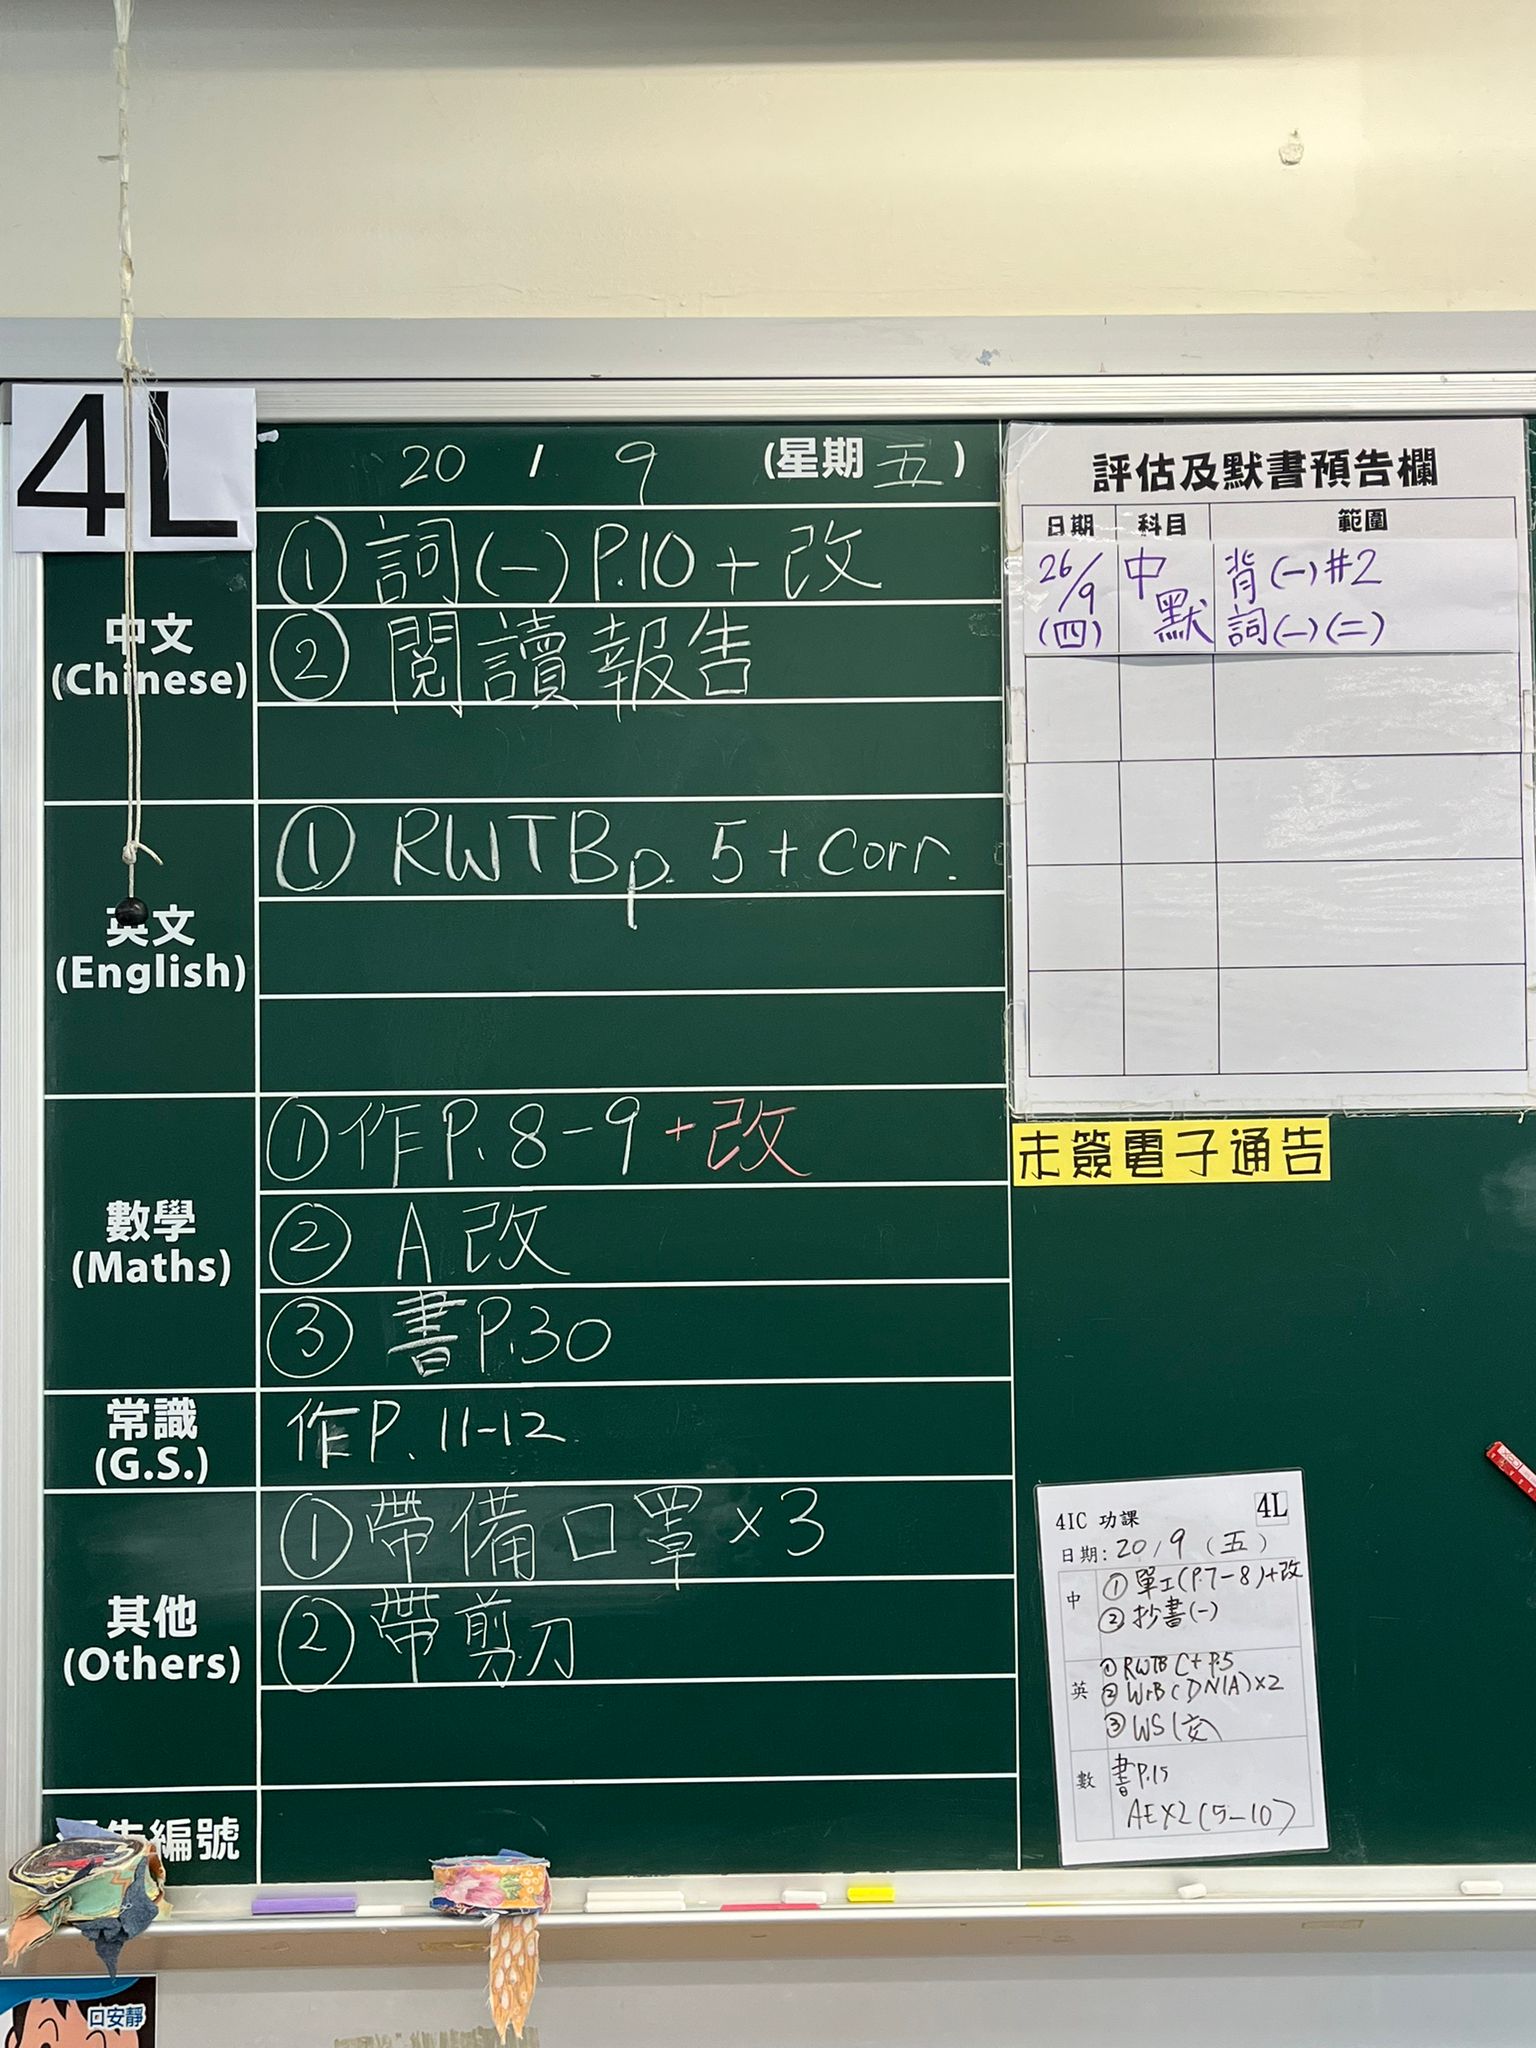 4L
20 / 9 (星期五)
中文
(Chinese)
① 詞(一) P.10 + 改
② 閱讀報告
英文
(English)
① RWTB p. 5 + Corr.
數學
(Maths)
① 作 P. 8-9 + 改
② A 改
③ 書 P.30
常識
(G.S.)
作 P. 11-12
其他
(Others)
① 帶備口罩 x 3
② 帶剪刀
編號
評估及默書預告欄
日期 科目 範圍
26/9 (四) 中默 背(一)#2
詞(一)(二)
未簽電子通告
4IC 功課 4L
日期: 20/9 (五)
中 ① 單工(P.7-8)+改
② 抄書(一)
英 ① RWTB C+P.5
② WrB (DN1A) x2
③ WS (交)
數 書 P.15
AEX2 (5-10)
口安靜